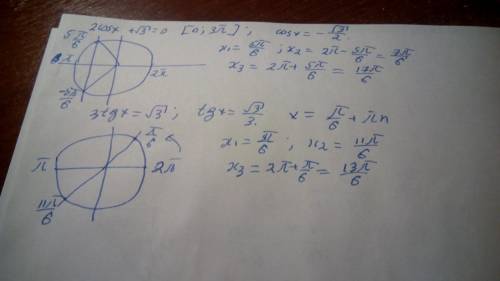 2cosx + √3 = 0 [0; 3π]; cosx = -√3/2.
5π/6
x₁ = 5π/6; x₂ = 2π - 5π/6 = 7π/6
π
2π
x₃ = 2π + 5π/6 = 17π/6
-5π/6
3tgx = √3; tgx = √3/3. x = π/6 + πn
π/6
x₁ = π/6; x₂ = 11π/6
π 2π
x₃ = 2π + π/6 = 13π/6
11π/6